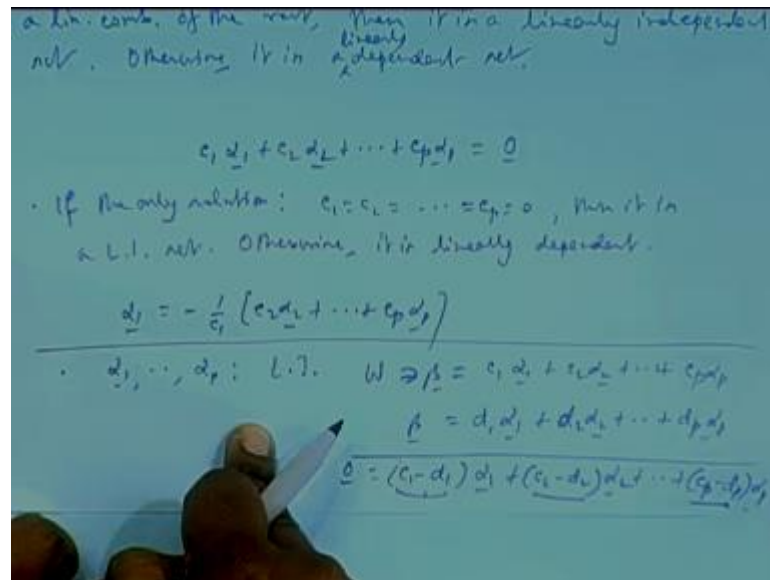 a lin. comb. of the rest, then it is a linearly independent
set. Otherwise, it is a linearly dependent set.
c₁ α₁ + c₂ α₂ + ··· + cₚ αₚ = 0
· If the only solution: c₁ = c₂ = ··· = cₚ = 0, then it is
a L.I. set. Otherwise, it is linearly dependent.
α₁ = - 1/c₁ [c₂ α₂ + ··· + cₚ αₚ]
· α₁, ··, αₚ : L.I. W ∋ β = c₁ α₁ + c₂ α₂ + ··· + cₚ αₚ
β = d₁ α₁ + d₂ α₂ + ·· + dₚ αₚ
0 = (c₁-d₁) α₁ + (c₂-d₂) α₂ + ··· + (cₚ-dₚ) αₚ